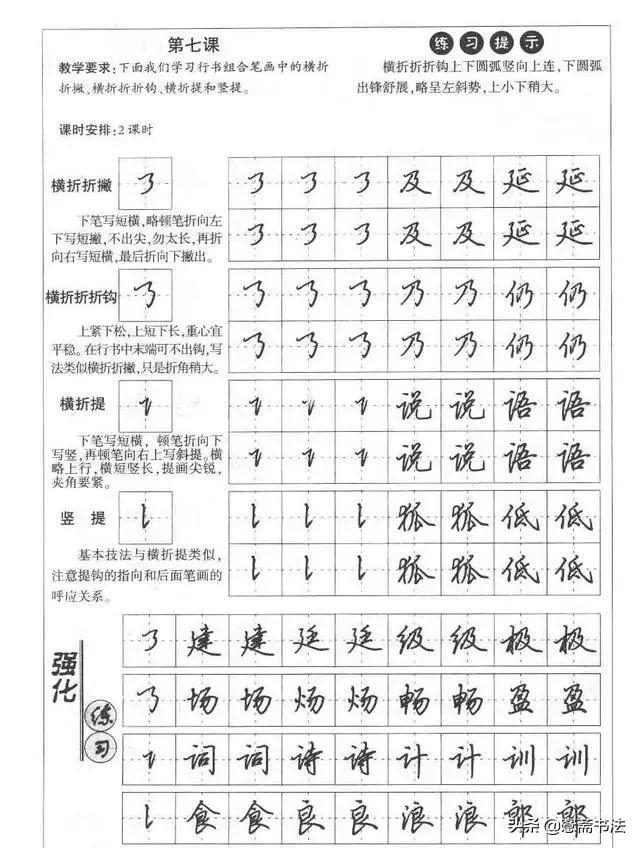 第七课
教学要求:下面我们学习行书组合笔画中的横折
折撇、横折折折钩、横折提和竖提。
课时安排:2课时
练习提示
横折折折钩上下圆弧竖向上连,下圆弧
出锋舒展,略呈左斜势,上小下稍大。
横折折撇
下笔写短横,略顿笔折向左
下写短撇,不出尖,勿太长,再折
向右写短横,最后折向下撇出。
及 及 延 延
及 及 延 延
横折折折钩
上紧下松,上短下长,重心宜
平稳。在行书中末端可不出钩,写
法类似横折折撇,只是折角稍大。
乃 乃 仍 仍
乃 乃 仍 仍
横折提
下笔写短横,顿笔折向下
写竖,再顿笔向右上写斜提。横
略上行,横短竖长,提画尖锐,
夹角要紧。
说 说 语 语
说 说 语 语
竖提
基本技法与横折提类似,
注意提钩的指向和后面笔画的
呼应关系。
狐 狐 低 低
狐 狐 低 低
强化
练习
建 建 廷 廷 级 级 极 极
场 场 炀 炀 畅 畅 盈 盈
词 词 诗 诗 计 计 训 训
食 食 良 良 浪 浪 郎 郎